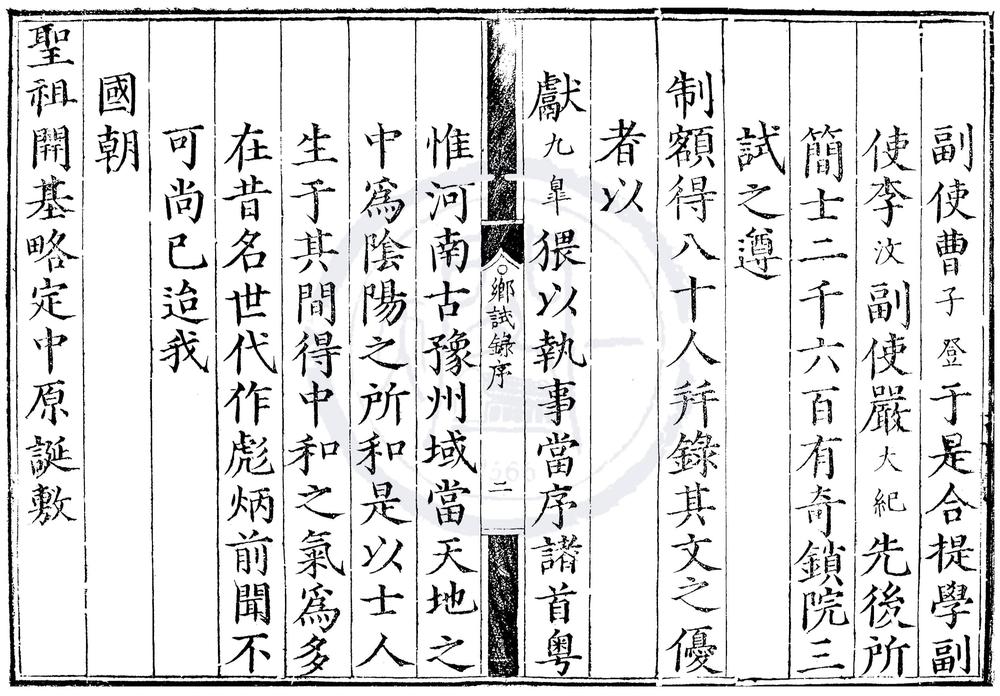 副使曹子登于是合提學副
使李汶副使嚴大紀先後所
簡士二千六百有奇鎖院三
試之遵
制額得八十人并錄其文之優
者以
獻九皐猥以執事當序諸首粤
鄉試錄序
二
惟河南古豫州域當天地之
中爲陰陽之所和是以士人
生于其間得中和之氣爲多
在昔名世代作彪炳前聞不
可尚已迨我
國朝
聖祖開基略定中原誕敷